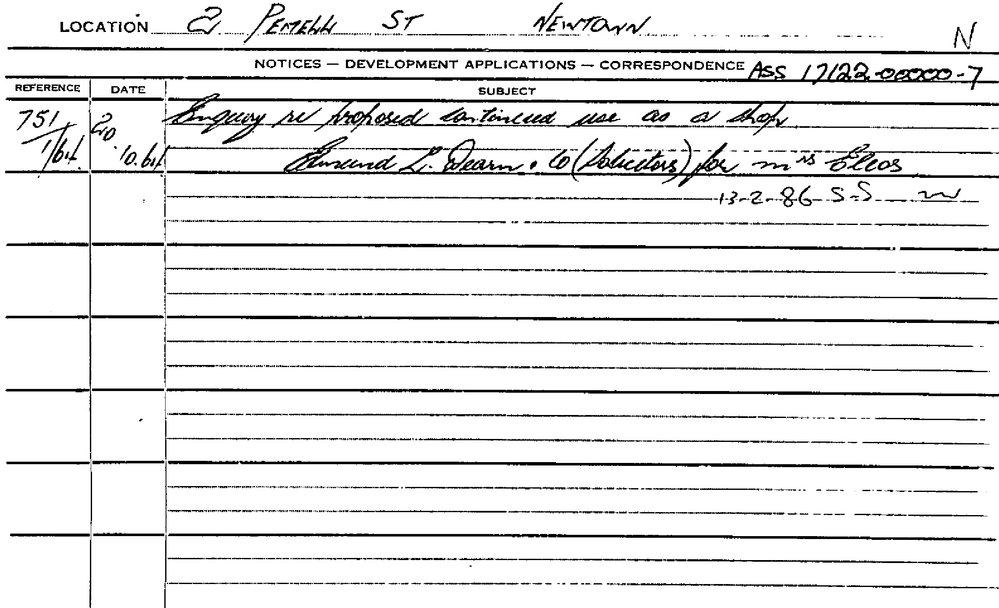 LOCATION 2 PEMELL ST NEWTOWN N
NOTICES — DEVELOPMENT APPLICATIONS — CORRESPONDENCE ASS 17122-00000-7
REFERENCE DATE SUBJECT
751 20. Enquiry re proposed continued use as a shop.
1/64 10.64 Edmund L. Dearn & Co (Solicitors) for Mrs
13-2-86 S-S